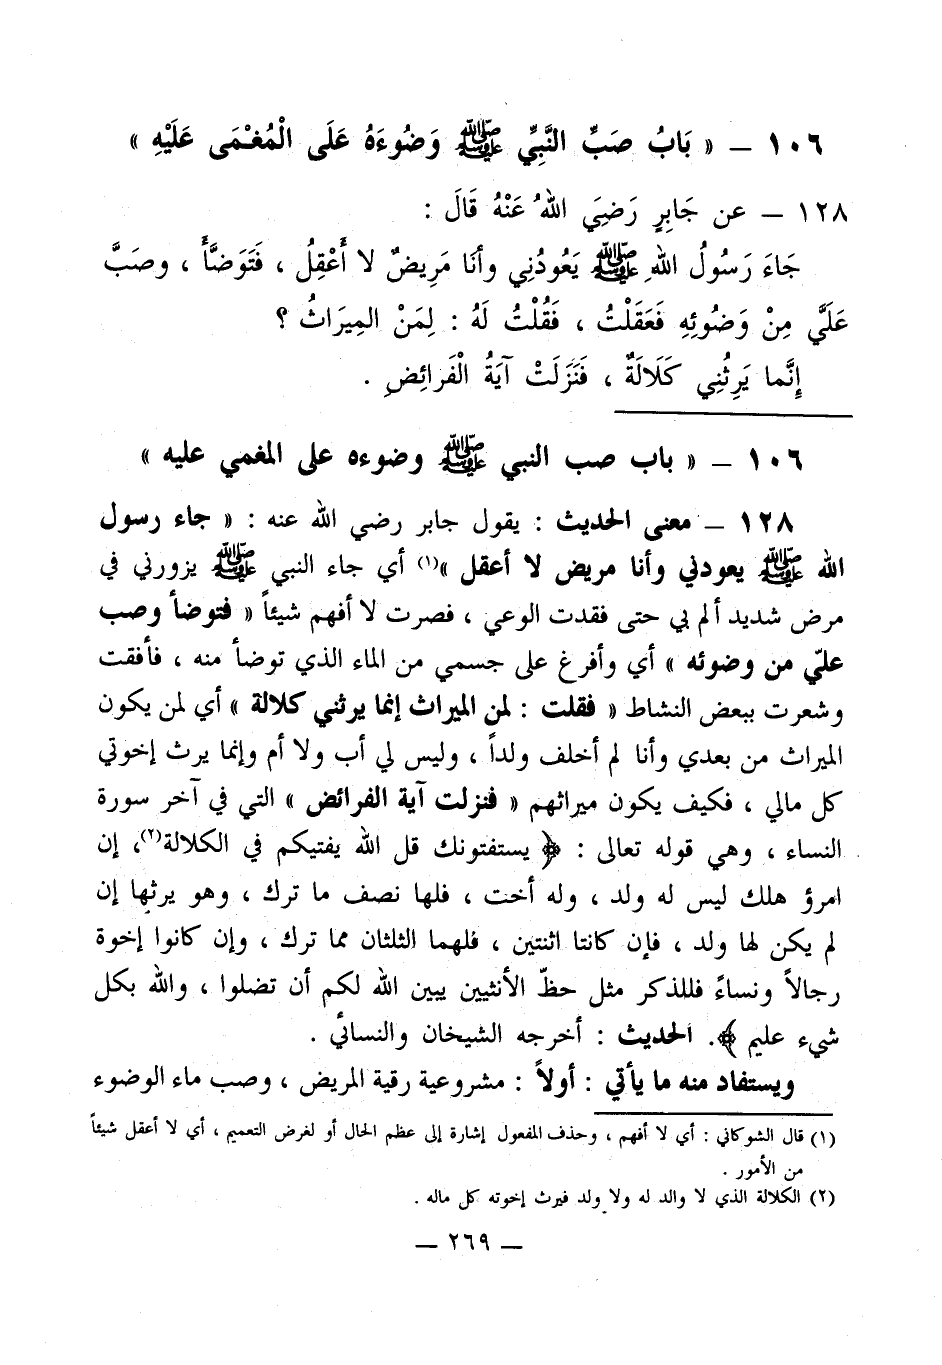 ١٠٦ – « بَابُ صَبِّ النَّبِيِّ ﷺ وَضُوءَهُ عَلَى الْمُغْمَى عَلَيْهِ »
١٢٨ – عن جَابِرٍ رَضِيَ اللهُ عَنْهُ قَالَ :
جَاءَ رَسُولُ اللهِ ﷺ يَعُودُنِي وأنَا مَرِيضٌ لا أَعْقِلُ ، فَتَوَضَّأَ ، وصَبَّ
عَلَيَّ مِنْ وَضُوئِهِ فَعَقَلْتُ ، فَقُلْتُ لَهُ : لِمَنْ المِيرَاثُ ؟
إِنَّما يَرِثُنِي كَلَالَةٌ ، فَنَزَلَتْ آيَةُ الْفَرائِضِ .
١٠٦ – « باب صب النبي ﷺ وضوءه على المغمي عليه »
١٢٨ – معنى الحديث : يقول جابر رضي الله عنه : « جاء رسول
الله ﷺ يعودني وأنا مريض لا أعقل »(١) أي جاء النبي ﷺ يزورني في
مرض شديد ألم بي حتى فقدت الوعي ، فصرت لا أفهم شيئاً « فتوضأ وصب
عليّ من وضوئه » أي وأفرغ على جسمي من الماء الذي توضأ منه ، فأفقت
وشعرت ببعض النشاط « فقلت : لمن الميراث إنما يرثني كلالة » أي لمن يكون
الميراث من بعدي وأنا لم أخلف ولداً ، وليس لي أب ولا أم وإنما يرث إخوتي
كل مالي ، فكيف يكون ميراثهم « فنزلت آية الفرائض » التي في آخر سورة
النساء ، وهي قوله تعالى : ﴿ يستفتونك قل الله يفتيكم في الكلالة(٢)، إن
امرؤ هلك ليس له ولد ، وله أخت ، فلها نصف ما ترك ، وهو يرثها إن
لم يكن لها ولد ، فإن كانتا اثنتين ، فلهما الثلثان مما ترك ، وإن كانوا إخوة
رجالاً ونساءً فللذكر مثل حظّ الأنثيين يبين الله لكم أن تضلوا ، والله بكل
شيء عليم ﴾. الحديث : أخرجه الشيخان والنسائي .
ويستفاد منه ما يأتي : أولاً : مشروعية رقية المريض ، وصب ماء الوضوء
(١) قال الشوكاني : أي لا أفهم ، وحذف المفعول إشارة إلى عظم الحال أو لغرض التعميم ، أي لا أعقل شيئاً
من الأمور .
(٢) الكلالة الذي لا والد له ولا ولد فيرث إخوته كل ماله .
– ٢٦٩ –